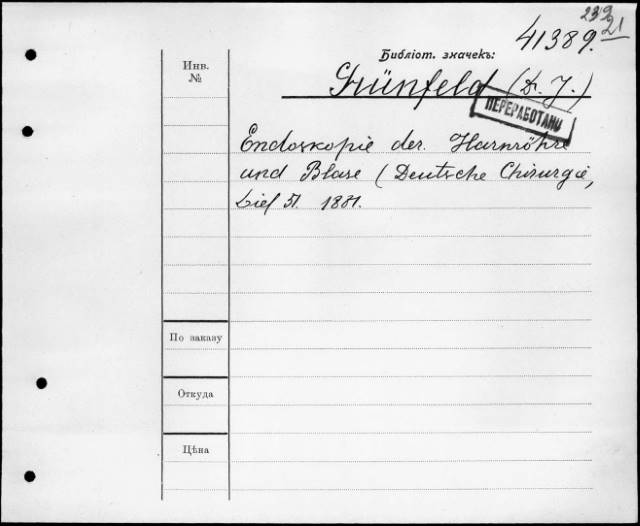 239
21
41389.
Библіот. значекъ:
Инв.
№
Grünfeld (Dr. J.)
ПЕРЕРАБОТАНО
Endoskopie der Harnröhre
und Blase (Deutsche Chirurgie,
Lief 51. 1881.
По заказу
Откуда
Цѣна